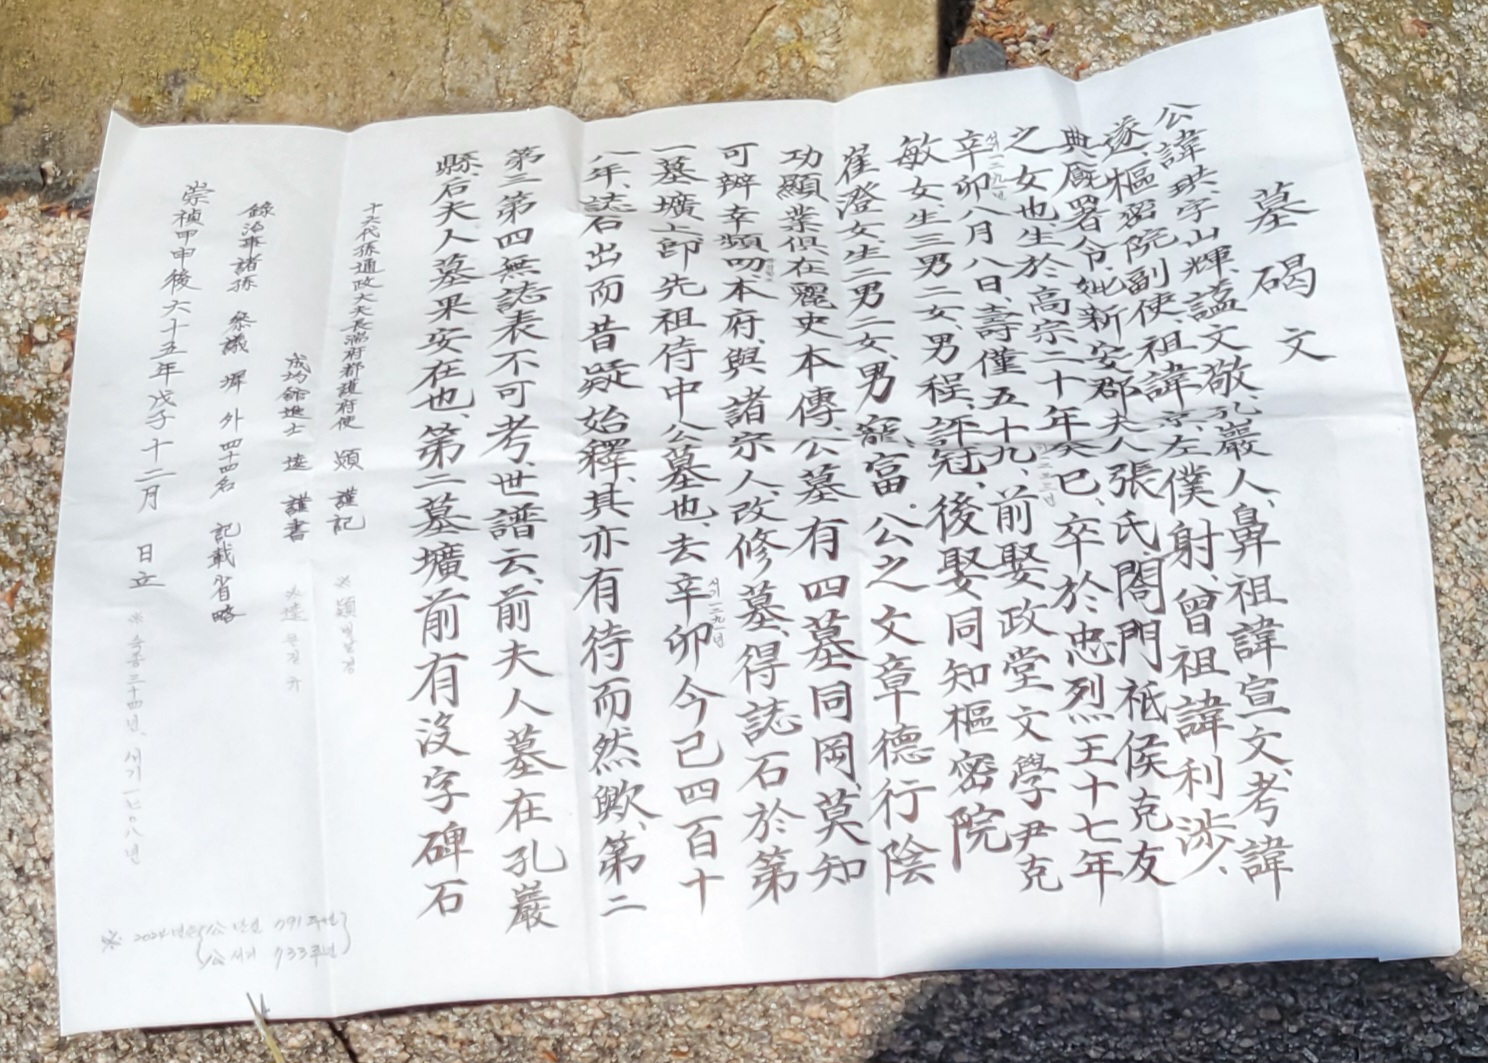 墓碣文
公諱珙字山輝、謚文敬、孔巖人、鼻祖諱宣文、考諱
遂、樞密院副使、祖諱京、左僕射、曾祖諱利涉、
典廐署令、妣新安郡夫人張氏、閤門祗侯克友
之女也、生於高宗二十年癸巳、卒於忠烈王十七年
辛卯八月八日、壽僅五十九、前娶政堂文學尹克
敏女、生三男二女、男程、評、冠、後娶同知樞密院
崔澄女、生二男二女、男寵、富、公之文章德行陰
功顯業俱在麗史本傳、公墓有四墓同岡、莫知
可辨幸頻叨本府、與諸宗人、改修墓、得誌石於第
一墓壙上卽先祖侍中公墓也、去辛卯今已四百十
八年、誌石出而昔疑始釋、其亦有待而然歟、第二
第三第四無誌表不可考、世譜云、前夫人墓在孔巖
縣、后夫人墓果安在也、第二墓壙前有沒字碑石
十六代孫通政大夫長湍府都護府使 熲 謹記
成均館進士 逵 謹書
錄治事諸孫 參議 墀 外 四十四名 記載省略
崇禎甲申後六十五年戊子十二月 日立 ※숙종三十四년、서기一七〇八년
※2024년은 公탄신 791주년
公서거 733주년